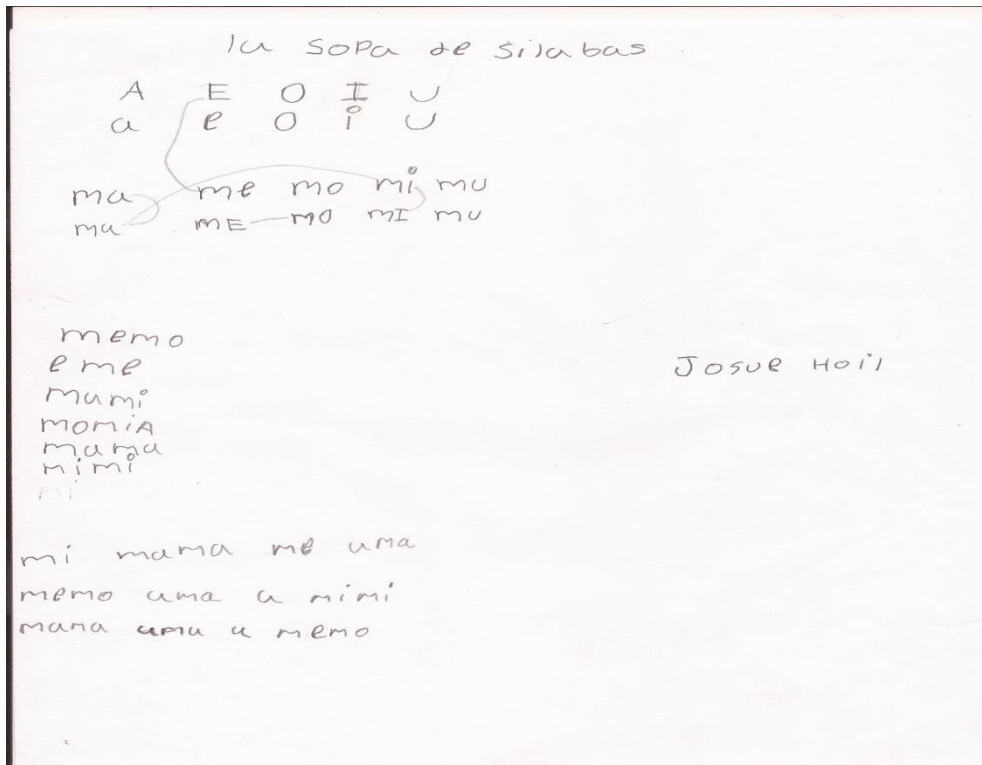 la sopa de silabas
A E O I U
a e o i u
ma me mo mi mu
ma mE mo mI mu
memo
eme
Josue Hoil
mami
momiA
mama
mimi
mi
mi mama me ama
memo ama a mimi
mama ama a memo